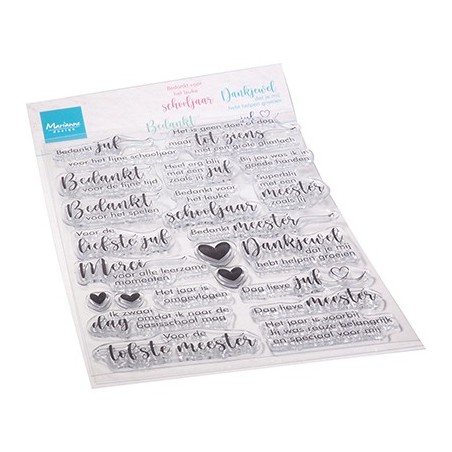 Marianne
DESIGN
Bedankt voor
het leuke
schooljaar
Dankjewel
dat je mij
hebt helpen groeien
Bedankt
Bedankt juf
voor het fijne schooljaar
Bedankt
voor de fijne tijd
Bedankt
voor het spelen
Voor de
liefste juf
Merci
voor alle leerzame
momenten
Het jaar is
omgevlogen
Ik zwaai
dag omdat ik naar de
basisschool mag
Voor de
tofste meester
Het is geen doei of dag
maar tot ziens
met een grote glimlach
Meer
zoals jij
Bedankt voor
het leuke
schooljaar
Bedankt meester
Dankjewel
dat je mij
hebt helpen groeien
Dag lieve juf
Dag lieve meester
Het jaar is voorbij
Jij was reuze belangrijk
en speciaal voor mij
Bij jou was ik in
goede handen
Superblij
met een
meester
zoals jij